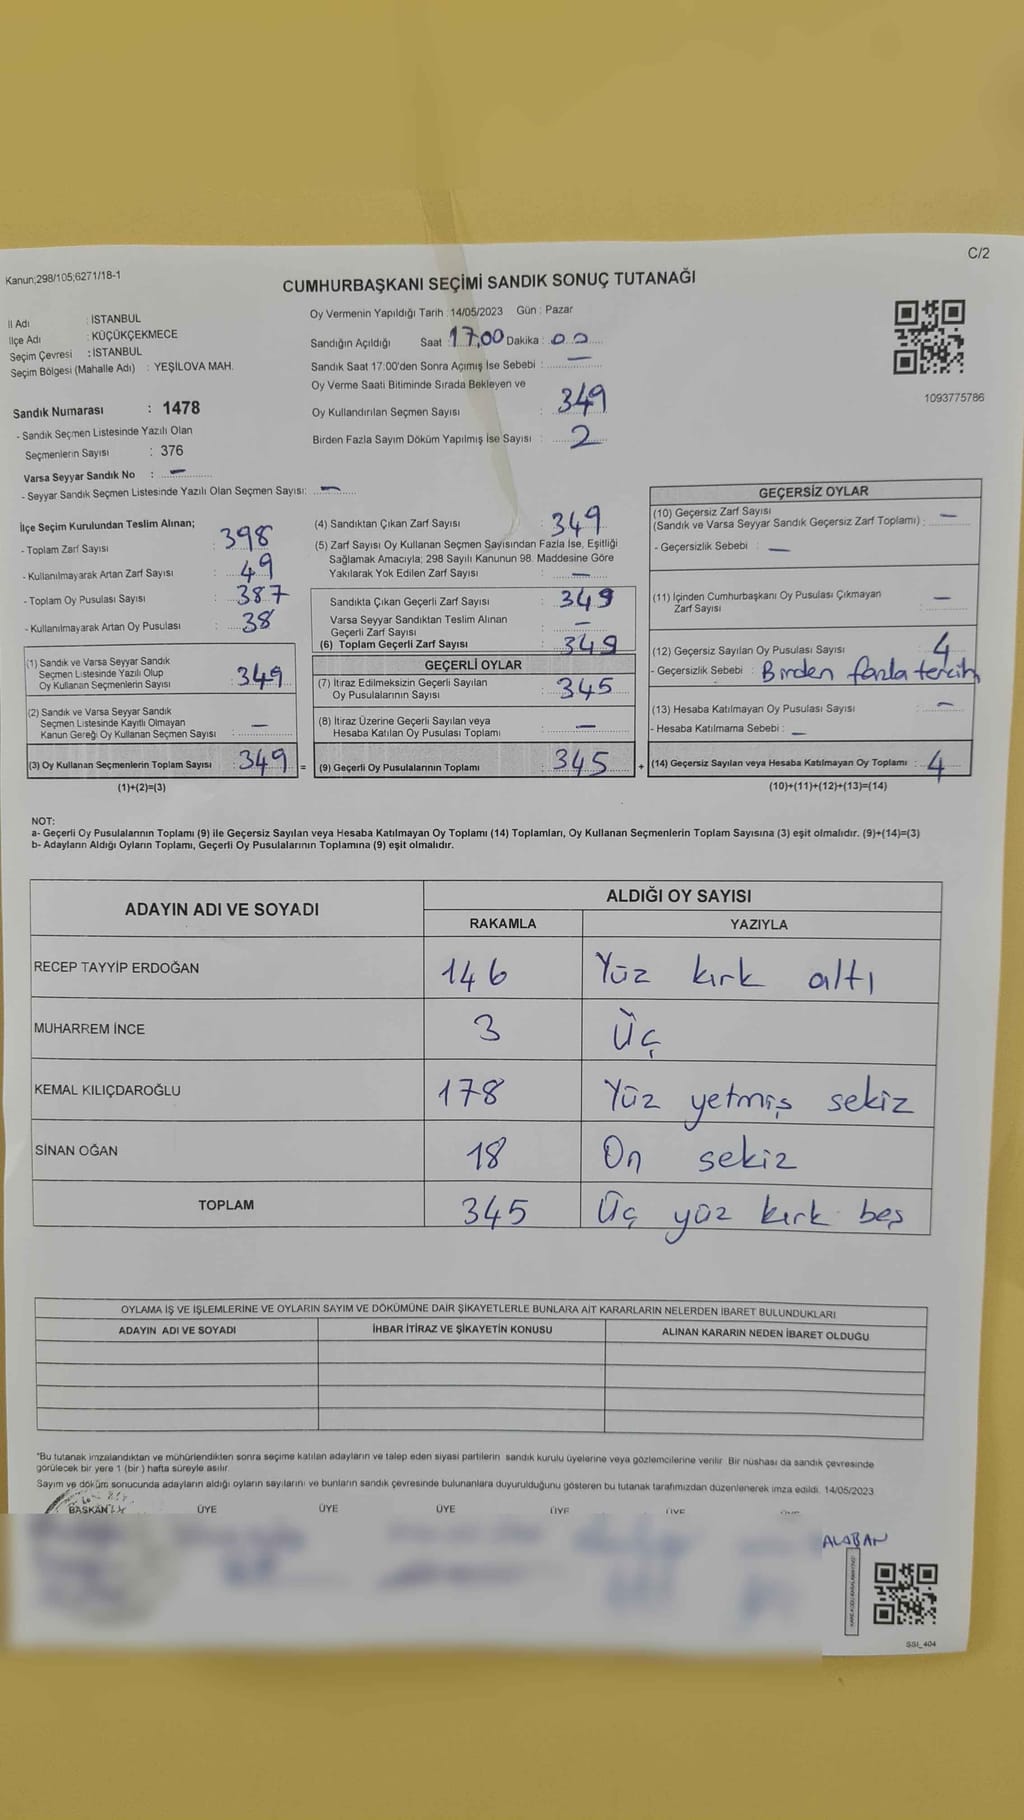 Kanun;298/105;6271/18-1
C/2
CUMHURBAŞKANI SEÇİMİ SANDIK SONUÇ TUTANAĞI
İl Adı : İSTANBUL
İlçe Adı : KÜÇÜKÇEKMECE
Seçim Çevresi : İSTANBUL
Seçim Bölgesi (Mahalle Adı) : YEŞİLOVA MAH.
Sandık Numarası : 1478
- Sandık Seçmen Listesinde Yazılı Olan
Seçmenlerin Sayısı : 376
Varsa Seyyar Sandık No : —
- Seyyar Sandık Seçmen Listesinde Yazılı Olan Seçmen Sayısı: —
Oy Vermenin Yapıldığı Tarih : 14/05/2023 Gün : Pazar
Sandığın Açıldığı Saat : 17,00 Dakika : 00
Sandık Saat 17:00'den Sonra Açımış İse Sebebi : —
Oy Verme Saati Bitiminde Sırada Bekleyen ve
Oy Kullandırılan Seçmen Sayısı : 349
Birden Fazla Sayım Döküm Yapılmış İse Sayısı : 2
1093775786
İlçe Seçim Kurulundan Teslim Alınan;
- Toplam Zarf Sayısı : 398
- Kullanılmayarak Artan Zarf Sayısı : 49
- Toplam Oy Pusulası Sayısı : 387
- Kullanılmayarak Artan Oy Pusulası : 38
(1) Sandık ve Varsa Seyyar Sandık
Seçmen Listesinde Yazılı Olup
Oy Kullanan Seçmenlerin Sayısı : 349
(2) Sandık ve Varsa Seyyar Sandık
Seçmen Listesinde Kayıtlı Olmayan
Kanun Gereği Oy Kullanan Seçmen Sayısı : —
(3) Oy Kullanan Seçmenlerin Toplam Sayısı : 349 =
(1)+(2)=(3)
(4) Sandıktan Çıkan Zarf Sayısı : 349
(5) Zarf Sayısı Oy Kullanan Seçmen Sayısından Fazla İse, Eşitliği
Sağlamak Amacıyla; 298 Sayılı Kanunun 98. Maddesine Göre
Yakılarak Yok Edilen Zarf Sayısı : —
Sandıkta Çıkan Geçerli Zarf Sayısı : 349
Varsa Seyyar Sandıktan Teslim Alınan
Geçerli Zarf Sayısı : —
(6) Toplam Geçerli Zarf Sayısı : 349
GEÇERLİ OYLAR
(7) İtiraz Edilmeksizin Geçerli Sayılan
Oy Pusulalarının Sayısı : 345
(8) İtiraz Üzerine Geçerli Sayılan veya
Hesaba Katılan Oy Pusulası Toplamı : —
(9) Geçerli Oy Pusulalarının Toplamı : 345 +
GEÇERSİZ OYLAR
(10) Geçersiz Zarf Sayısı
(Sandık ve Varsa Seyyar Sandık Geçersiz Zarf Toplamı) : —
- Geçersizlik Sebebi : —
(11) İçinden Cumhurbaşkanı Oy Pusulası Çıkmayan
Zarf Sayısı : —
(12) Geçersiz Sayılan Oy Pusulası Sayısı : 4
- Geçersizlik Sebebi : Birden fazla tercih
(13) Hesaba Katılmayan Oy Pusulası Sayısı : —
- Hesaba Katılmama Sebebi : —
(14) Geçersiz Sayılan veya Hesaba Katılmayan Oy Toplamı : 4
(10)+(11)+(12)+(13)=(14)
NOT:
a- Geçerli Oy Pusulalarının Toplamı (9) ile Geçersiz Sayılan veya Hesaba Katılmayan Oy Toplamı (14) Toplamları, Oy Kullanan Seçmenlerin Toplam Sayısına (3) eşit olmalıdır. (9)+(14)=(3)
b- Adayların Aldığı Oyların Toplamı, Geçerli Oy Pusulalarının Toplamına (9) eşit olmalıdır.
ADAYIN ADI VE SOYADI
ALDIĞI OY SAYISI
RAKAMLA YAZIYLA
RECEP TAYYİP ERDOĞAN 146 Yüz kırk altı
MUHARREM İNCE 3 Üç
KEMAL KILIÇDAROĞLU 178 Yüz yetmiş sekiz
SİNAN OĞAN 18 On sekiz
TOPLAM 345 Üç yüz kırk beş
OYLAMA İŞ VE İŞLEMLERİNE VE OYLARIN SAYIM VE DÖKÜMÜNE DAİR ŞİKAYETLERLE BUNLARA AİT KARARLARIN NELERDEN İBARET BULUNDUKLARI
ADAYIN ADI VE SOYADI İHBAR İTİRAZ VE ŞİKAYETİN KONUSU ALINAN KARARIN NEDEN İBARET OLDUĞU
*Bu tutanak imzalandıktan ve mühürlendikten sonra seçime katılan adayların ve talep eden siyasi partilerin sandık kurulu üyelerine veya gözlemcilerine verilir. Bir nüshası da sandık çevresinde
görülecek bir yere 1 (bir ) hafta süreyle asılır.
Sayım ve döküm sonucunda adayların aldığı oyların sayılarını ve bunların sandık çevresinde bulunanlara duyurulduğunu gösteren bu tutanak tarafımızdan düzenlenerek imza edildi. 14/05/2023
BAŞKAN ÜYE ÜYE ÜYE ÜYE ÜYE
ALABAN
SSI_404